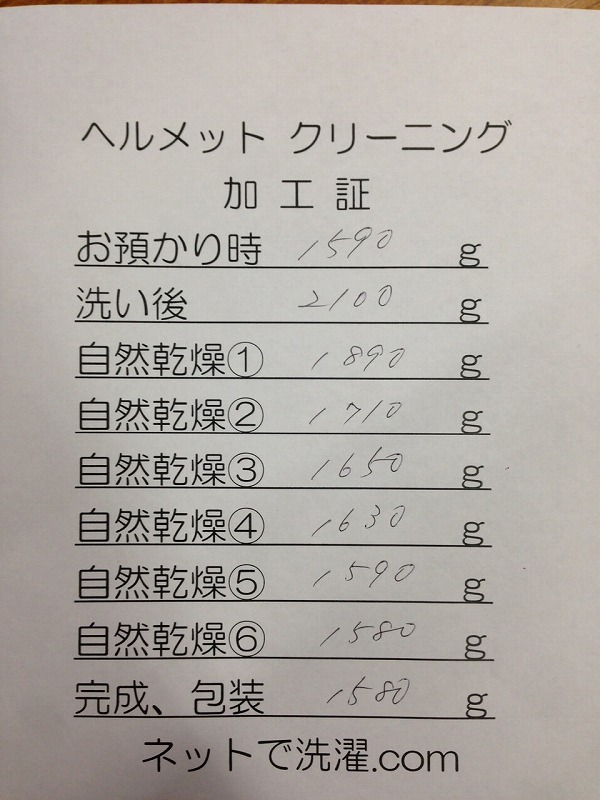 ヘルメット クリーニング
加 工 証
お預かり時 1590 g
洗い後 2100 g
自然乾燥① 1890 g
自然乾燥② 1710 g
自然乾燥③ 1650 g
自然乾燥④ 1630 g
自然乾燥⑤ 1590 g
自然乾燥⑥ 1580 g
完成、包装 1580 g
ネットで洗濯.com